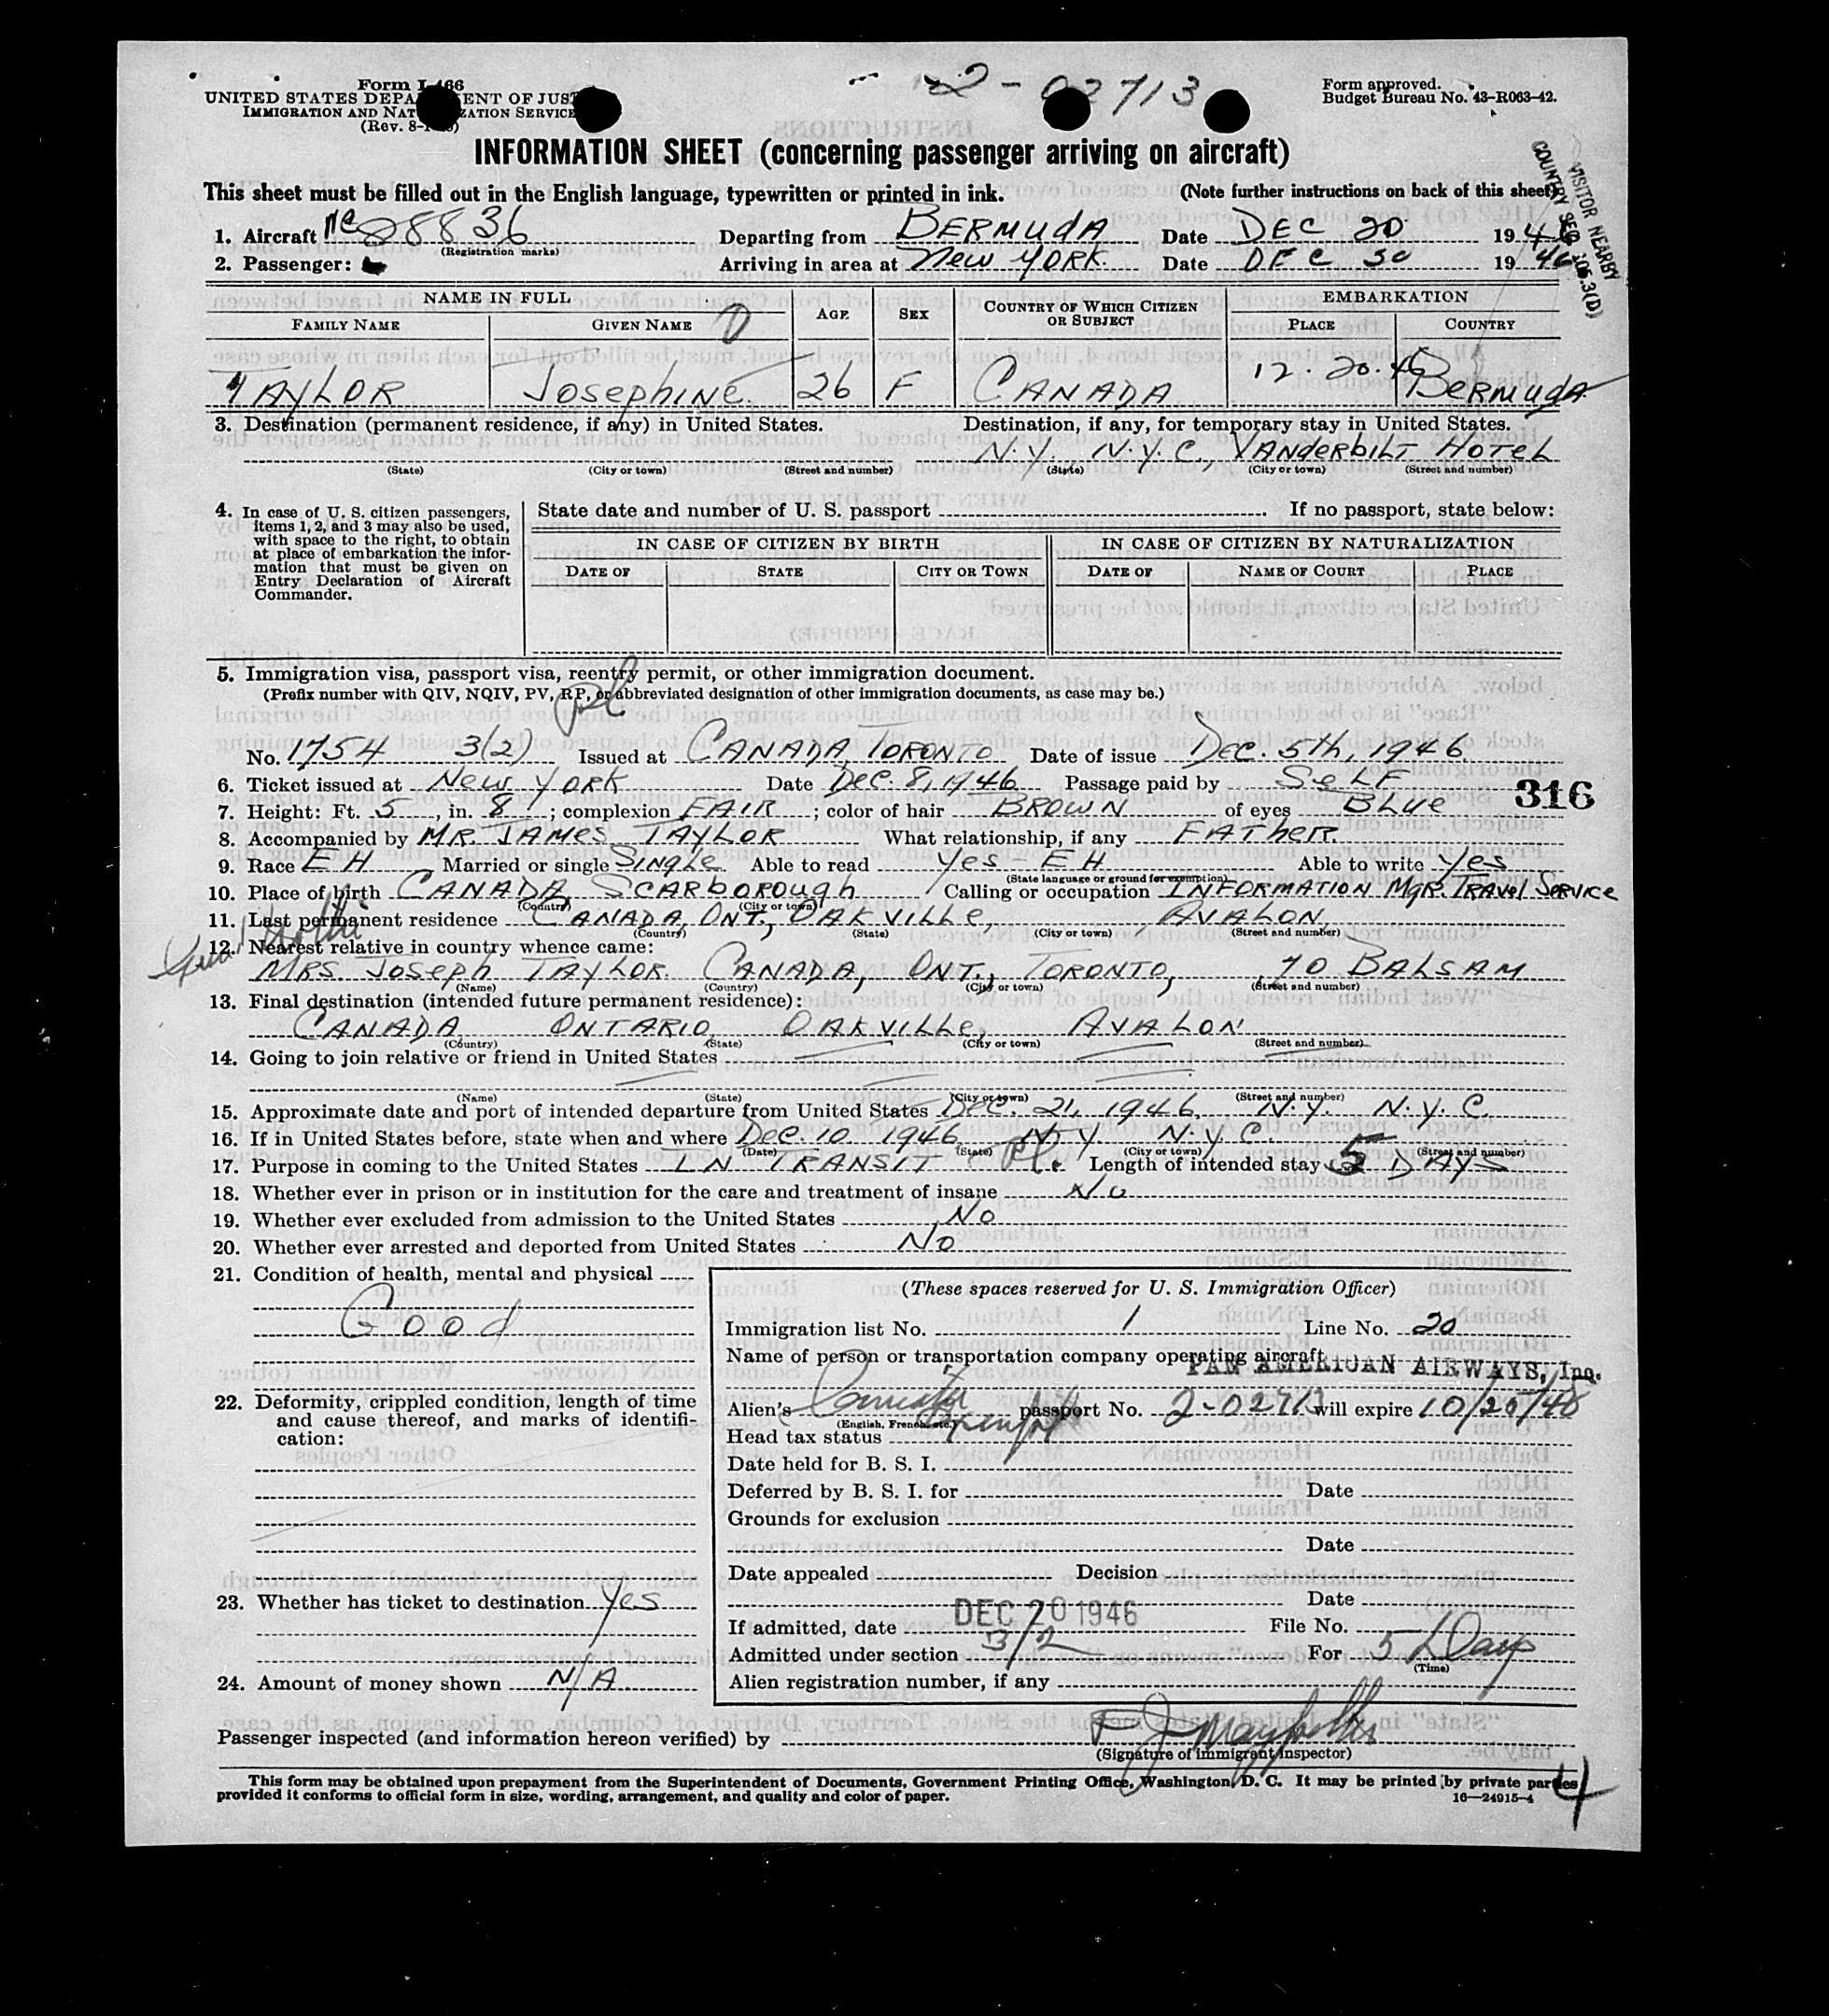 Form I-466
UNITED STATES DEPARTMENT OF JUSTICE
IMMIGRATION AND NATURALIZATION SERVICE
(Rev. 8-
2-02713
Form approved.
Budget Bureau No. 43-R063-42.
INFORMATION SHEET (concerning passenger arriving on aircraft)
This sheet must be filled out in the English language, typewritten or printed in ink. (Note further instructions on back of this sheet)
VISITOR NEARBY
COUNTRY SEC 105.3(D)
1. Aircraft NC 88836 Departing from BERMUDA Date DEC 20 1946
(Registration marks)
2. Passenger: Arriving in area at NEW YORK Date DEC 20 1946
NAME IN FULL AGE SEX COUNTRY OF WHICH CITIZEN OR SUBJECT EMBARKATION
FAMILY NAME GIVEN NAME PLACE COUNTRY
TAYLOR JOSEPHINE 26 F CANADA 12.20.46 BERMUDA
3. Destination (permanent residence, if any) in United States. Destination, if any, for temporary stay in United States.
N.Y., N.Y.C., VANDERBILT HOTEL
(State) (City or town) (Street and number) (State) (City or town) (Street and number)
4. In case of U. S. citizen passengers, items 1, 2, and 3 may also be used, with space to the right, to obtain at place of embarkation the information that must be given on Entry Declaration of Aircraft Commander.
State date and number of U. S. passport If no passport, state below:
IN CASE OF CITIZEN BY BIRTH IN CASE OF CITIZEN BY NATURALIZATION
DATE OF STATE CITY OR TOWN DATE OF NAME OF COURT PLACE
5. Immigration visa, passport visa, reentry permit, or other immigration document.
(Prefix number with QIV, NQIV, PV, RP, or abbreviated designation of other immigration documents, as case may be.)
No. 1754 3(2) Issued at CANADA, TORONTO Date of issue DEC. 5th, 1946
6. Ticket issued at NEW YORK Date DEC. 8, 1946 Passage paid by SELF
316
7. Height: Ft. 5, in. 8; complexion FAIR; color of hair BROWN of eyes BLUE
8. Accompanied by MR. JAMES TAYLOR What relationship, if any FATHER
9. Race EH Married or single SINGLE Able to read YES - EH Able to write YES
(State language or ground for exemption)
10. Place of birth CANADA SCARBOROUGH Calling or occupation INFORMATION MGR. TRAVEL SERVICE
(Country) (City or town)
11. Last permanent residence CANADA, ONT., OAKVILLE, AVALON
(Country) (State) (City or town) (Street and number)
12. Nearest relative in country whence came:
MRS. JOSEPH TAYLOR CANADA, ONT., TORONTO, 70 BALSAM
(Name) (Country) (City or town) (Street and number)
13. Final destination (intended future permanent residence):
CANADA ONTARIO OAKVILLE, AVALON
(Country) (State) (City or town) (Street and number)
14. Going to join relative or friend in United States
(Name) (State) (City or town) (Street and number)
15. Approximate date and port of intended departure from United States DEC. 21, 1946, N.Y. N.Y.C.
16. If in United States before, state when and where DEC. 10 1946 N.Y. N.Y.C.
(Date) (State) (City or town) (Street and number)
17. Purpose in coming to the United States IN TRANSIT Length of intended stay 5 DAYS
18. Whether ever in prison or in institution for the care and treatment of insane No
19. Whether ever excluded from admission to the United States No
20. Whether ever arrested and deported from United States No
21. Condition of health, mental and physical
Good
22. Deformity, crippled condition, length of time and cause thereof, and marks of identification:
23. Whether has ticket to destination Yes
24. Amount of money shown N/A
(These spaces reserved for U. S. Immigration Officer)
Immigration list No. 1 Line No. 20
Name of person or transportation company operating aircraft
PAN AMERICAN AIRWAYS, Inc.
Alien's passport No. 2-02713 will expire 10/25/48
(English, French, etc.)
Head tax status
Date held for B. S. I.
Deferred by B. S. I. for Date
Grounds for exclusion
Date
Date appealed Decision
Date
If admitted, date DEC 20 1946 File No.
Admitted under section 3/2 For 5 Days
(Time)
Alien registration number, if any
Passenger inspected (and information hereon verified) by
(Signature of immigrant inspector)
This form may be obtained upon prepayment from the Superintendent of Documents, Government Printing Office, Washington, D. C. It may be printed by private parties
provided it conforms to official form in size, wording, arrangement, and quality and color of paper. 16—24915-4
4